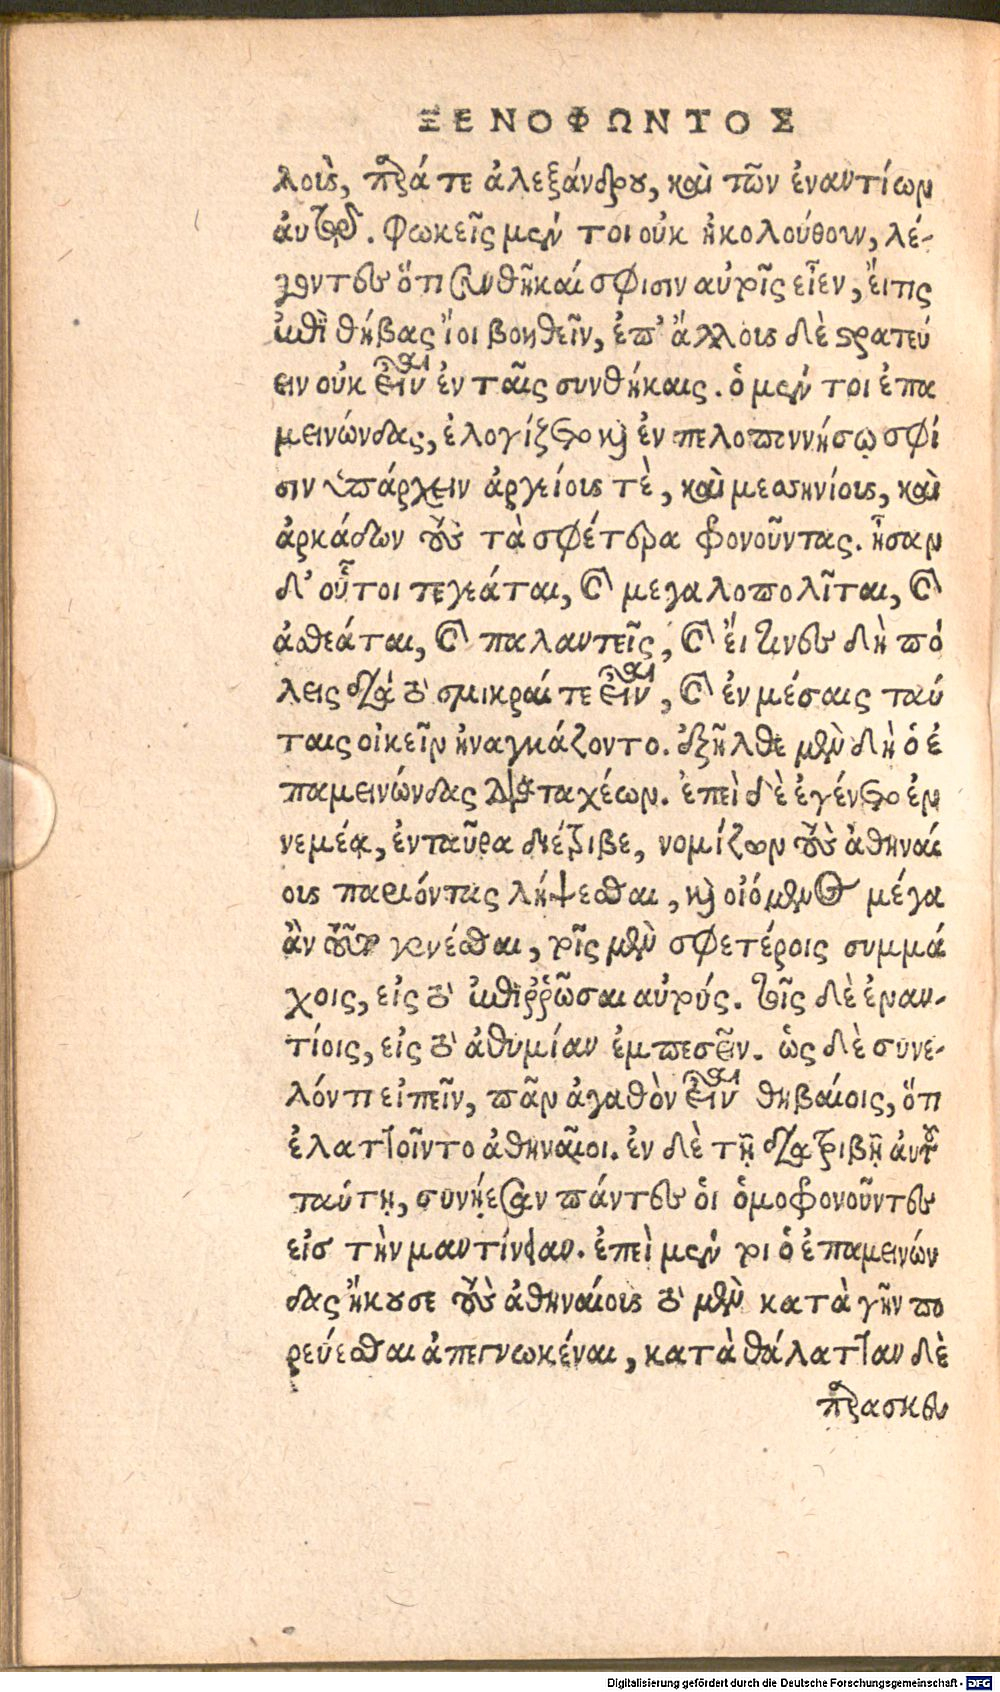 ΞΕΝΟΦΩΝΤΟΣ
λοὺς, παρά τε ἀλεξάνδρου, καὶ τῶν ἐναντίων
ἀυτῷ. Φωκεῖς μέν τοι οὐκ ἠκολούθουν, λέ-
γοντες ὅτι συνθῆκαί σφισιν αὐτοῖς εἶεν, ἔιτις
ἐπὶ θήβας ἴοι βοηθεῖν, ἐπ' ἄλλους δὲ στρατεύ
ειν οὐκ εἶναι ἐν ταῖς συνθήκαις. ὁ μέν τοι ἐπα
μεινώνδας, ἐλογίζετο καὶ ἐν πελοποννήσῳ σφί
σιν ὑπάρχειν ἀργείους τὲ, καὶ μεσσηνίους, καὶ
ἀρκάδων τοὺς τὰ σφέτερα φρονοῦντας. ἦσαν
δ' οὗτοι τεγεάται, καὶ μεγαλοπολῖται, καὶ
ἀσεάται, καὶ παλαντεῖς, καὶ ἔι τινες δὴ πό
λεις διὰ τὸ σμικραί τε εἶναι, καὶ ἐν μέσαις ταύ
ταις οἰκεῖν ἠναγκάζοντο. ἐξῆλθε μὲν δὴ ὁ ἐ
παμεινώνδας διὰ ταχέων. ἐπεὶ δὲ ἐγένετο ἐν
νεμέᾳ, ἐνταῦθα διέτριβε, νομίζων τοὺς ἀθηναί
ους παριόντας λήψεσθαι, καὶ οἰόμενος μέγα
ἂν τοῦτο γενέσθαι, τοῖς μὲν σφετέροις συμμά
χοις, εἰς τὸ ἐπιῤῥῶσαι αὐτούς. τοῖς δὲ ἐναν-
τίοις, εἰς τὸ ἀθυμίαν ἐμπεσεῖν. ὡς δὲ συνε-
λόντι εἰπεῖν, πᾶν ἀγαθὸν εἶναι θηβαίοις, ὅτι
ἐλαττοῖντο ἀθηναῖοι. ἐν δὲ τῇ διατριβῇ ἀυτοῦ
ταύτῃ, συνῄεσαν πάντες ὁι ὁμοφρονοῦντες
εἰσ τὴν μαντίνειαν. ἐπεὶ μέν τοι ὁ ἐπαμεινών
δας ἤκουσε τοὺς ἀθηναίους τὸ μὲν κατὰ γῆν πο
ρεύεσθαι ἀπεγνωκέναι, κατὰ θάλατταν δὲ
παρασκευ
Digitalisierung gefördert durch die Deutsche Forschungsgemeinschaft - DFG